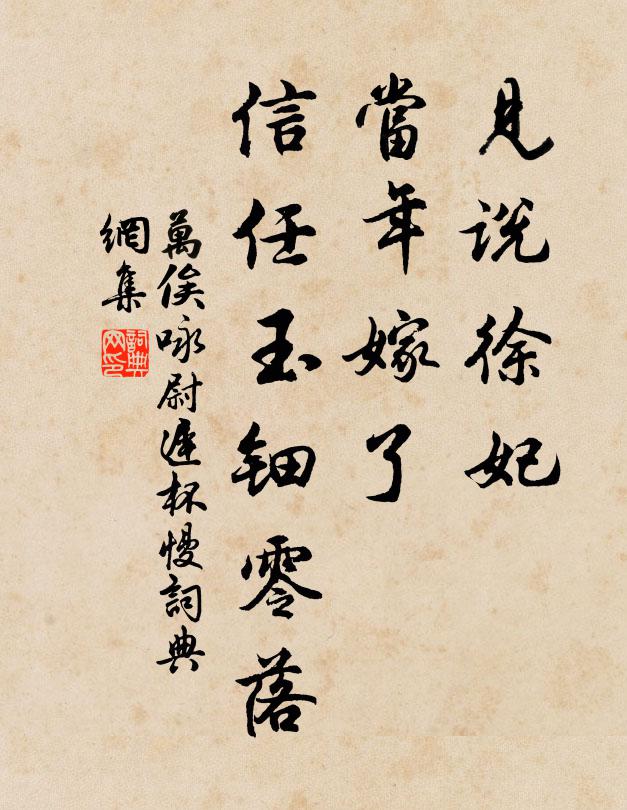 見説徐妃
當年嫁了
信任玉鈿零落
萬俟咏尉遲杯慢詞典
網集
詞典
网印